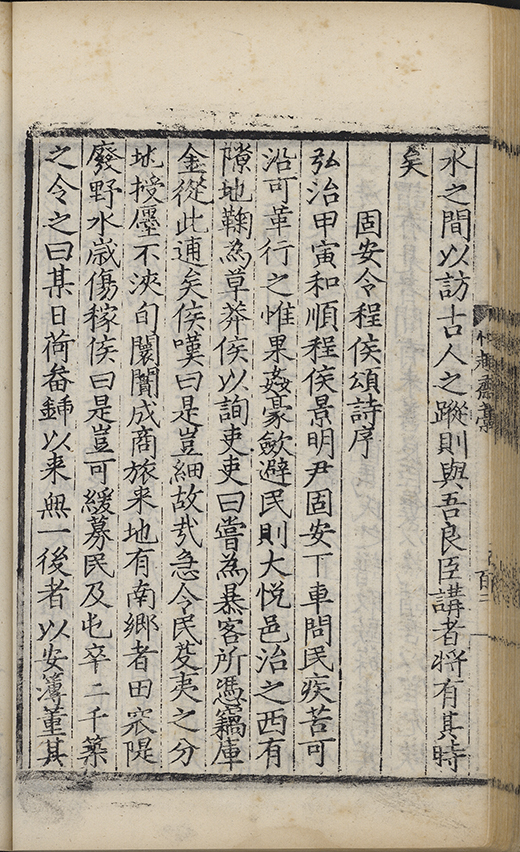 水之間以訪古人之蹤則與吾良臣講者將有其時
矣
固安令程侯頌詩序
弘治甲寅和順程侯景明尹固安丁車問民疾苦可
沿可革行之惟果姦豪歛避民則大悅邑治之西有
隙地鞠為草莽侯以詢吏吏曰嘗為暴客所憑竊庫
金從此逋矣侯嘆曰是豈細故㢤急令民芟夷之分
地授廛不浹旬闤闠成商旅来地有南鄉者田宼隄
廢野水嵗傷稼侯曰是豈可緩募民及屯卒二千築
之令之曰某日荷畚鍤以来無一後者以安簿董其